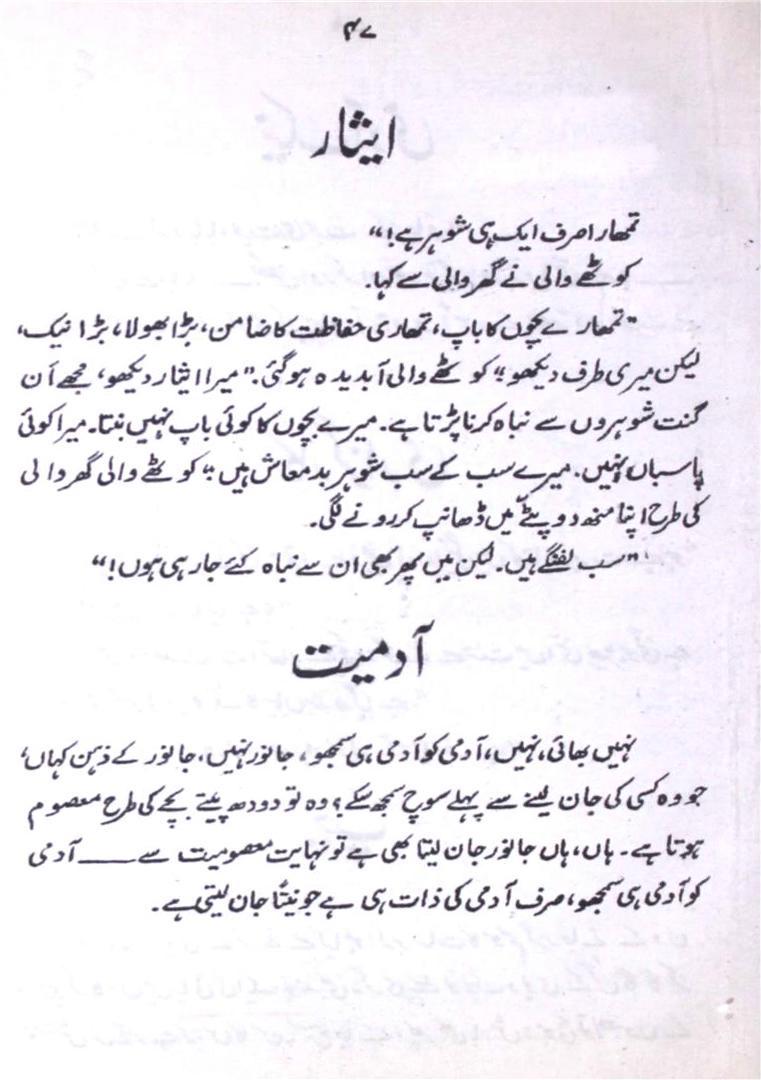 ۴۷
ایثار
تمھارا صرف ایک ہی شوہر ہے!“
کوٹھے والی نے گھر والی سے کہا۔
”تمھارے بچوں کا باپ، تمھاری حفاظت کا ضامن، بڑا بھولا، بڑا نیک،
لیکن میری طرف دیکھو“ کوٹھے والی آبدیدہ ہوگئی۔ ”میرا ایثار دیکھو، مجھے اَن
گنت شوہروں سے نباہ کرنا پڑتا ہے۔ میرے بچوں کا کوئی باپ نہیں بنتا۔ میرا کوئی
پاسباں نہیں۔ میرے سب کے سب شوہر بدمعاش ہیں“ کوٹھے والی گھر والی
کی طرح اپنا منھ دوپٹے میں ڈھانپ کر رونے لگی۔
”سب لفنگے ہیں۔ لیکن میں پھر بھی ان سے نباہ کئے جا رہی ہوں!“
آدمیت
نہیں بھائی، نہیں، آدمی کو آدمی ہی سمجھو، جانور نہیں۔ جانور کے ذہن کہاں،
جو وہ کسی کی جان لینے سے پہلے سوچ سمجھ سکے؟ وہ تو دودھ پیتے بچے کی طرح معصوم
ہوتا ہے۔ ہاں، ہاں جانور جان لیتا بھی ہے تو نہایت معصومیت سے —— آدمی
کو آدمی ہی سمجھو، صرف آدمی کی ذات ہی ہے جو نیتاً جان لیتی ہے۔